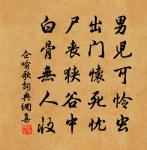 男兒可憐虫
出門懷死忧
尸喪狹谷中
白骨無人收
企喻歌詞典網集